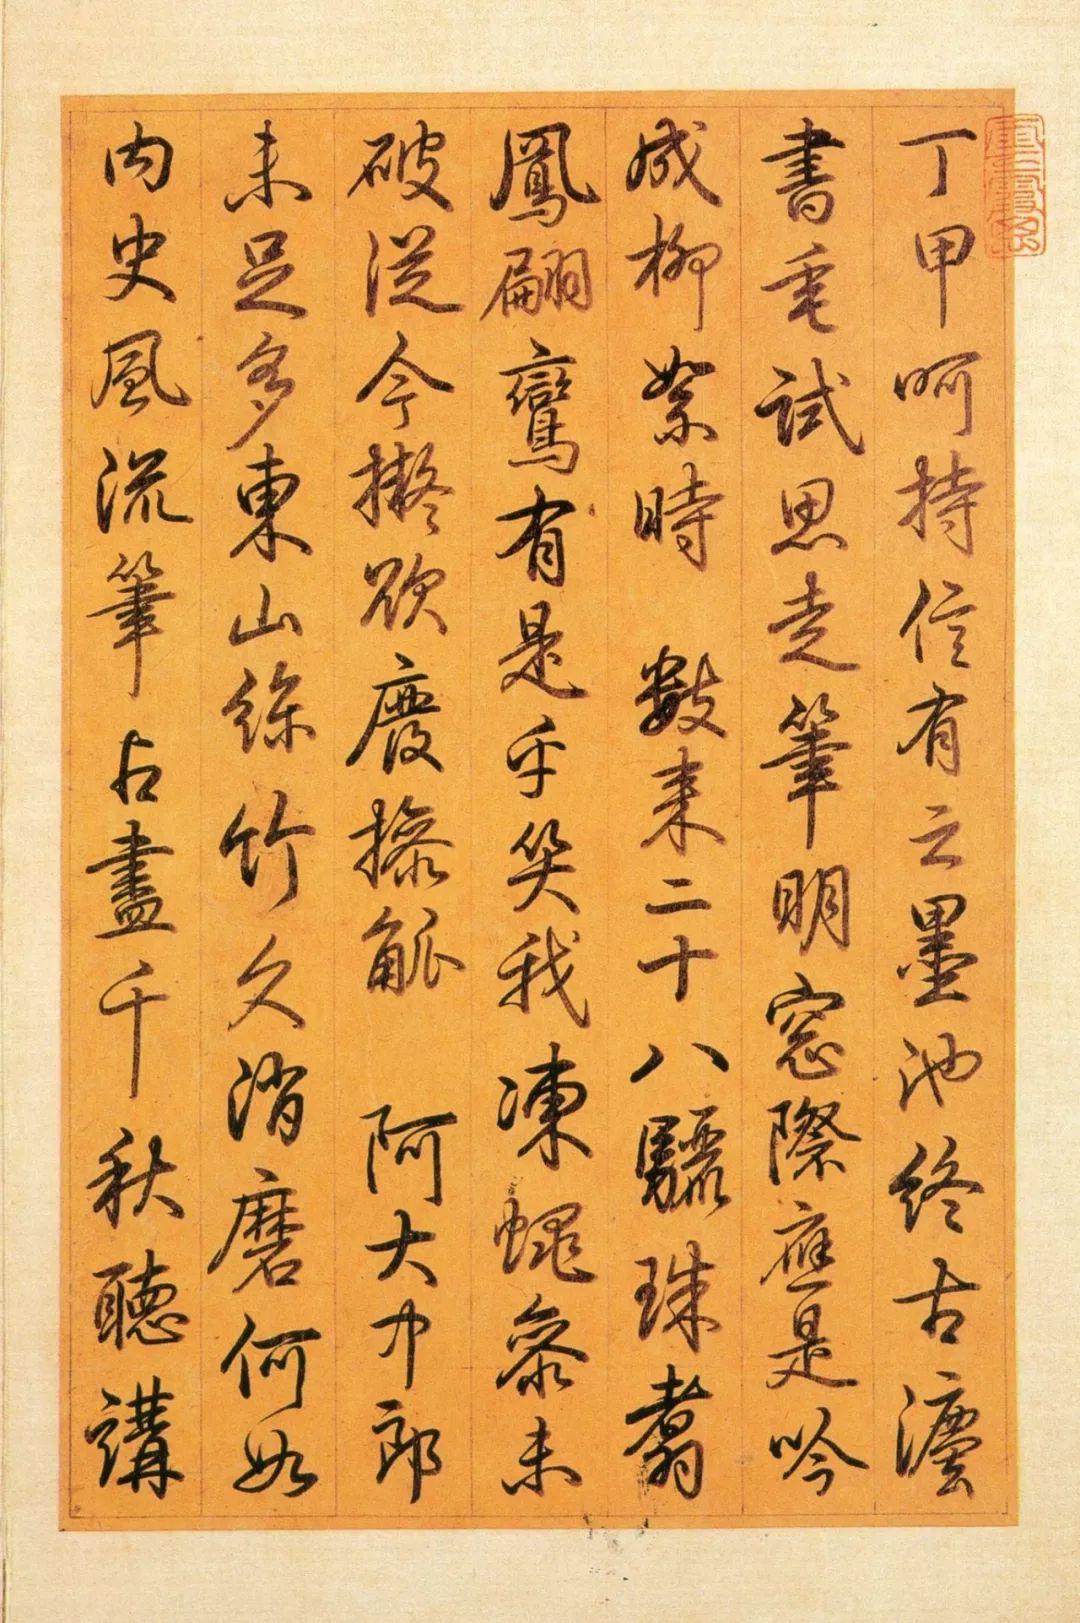 丁甲呵持信有之墨池終古瀵
書毛試思走筆明窓際應是吟
成柳絮時　數来二十八驪珠翥
鳳翩鸞有是乎笑我凍蠅叅未
破從今擬欲廢操觚　阿大中郎
未足多東山絲竹久消磨何如
内史風流筆占盡千秋聽講